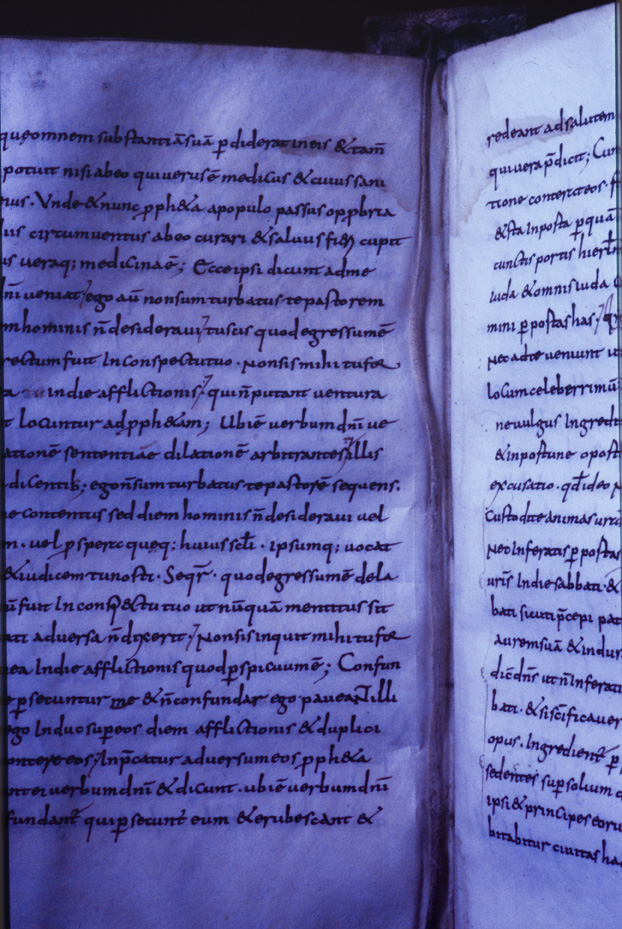 queomnem substantiāsuā ꝑdiderat ineis &tam̄
potuit nisi abeo qui uerusē medicus & cuius sani
Unde & nunc ꝓph&a apopulo passus opprobria
circumuentus abeo curari & saluus fieri cupit
ueraq; medicinaē; Ecce ipsi dicunt adme
dn̄i ueniat; ego aū nonsum turbatus te pastorem
hominis n̄ desideraui; tu scis quod egressumē
rectum fuit Inconspectu tuo · Non sis mihi tu for
indie afflictionis; qui n̄ putant uentura
locuntur ad ꝓph&am; Ubi ē uerbum dn̄i ue
ationē sententiae dilationē arbitrantes; Illis
dicentib; ego n̄ sum turbatus te pastorē sequens.
contentus sed diem hominis n̄ desideraui uel
uel ꝓspere queq; huius scl̄i · ipsumq; uocat
&iudicem tu nosti · Seqr̄ · quod egressumē de la
fuit Inconspectu tuo ut nūquā mentitus sit
adversa n̄ dixerit; Non sis inquit mihi tu for
Indie afflictionis quod ꝑspicuumē; Confun
ꝑsecuntur me & n̄ confundar ego paueaNT illi
ego Induc sup eos diem afflictionis & duplici
contere eos; Inp̄catur aduersum eos ꝓph&a
uerbum dn̄i & dicunt · ubi ē uerbum dn̄i
fundant̄ qui ꝑsecunt̄ eum & erubescant &
redeant ad salutem
qui uera p̄dicit; Cun
tione conterct eos
&sta Inporta ꝑ quā
cunctis portis hierl̄m
iuda & omnis iuda
mini ꝑ portas has;
Nec ad te ueniunt
locum celeberrimū
ne uulgus Ingredi
& inportune oport
excusatio · qd̄ ideo
Custodite animas urās
Nec Inferatis ꝑ portas
uris̄ Indie sabbati &
bati sicuti p̄cepi pat
aurem suā & indur
diē dn̄s ut n̄ Inferati
bati · & sc̄ificauer
opus. Ingredient̄ ꝑ
sedentes sup solium
ipsi & principes eoru
bitabitur ciuitas ha